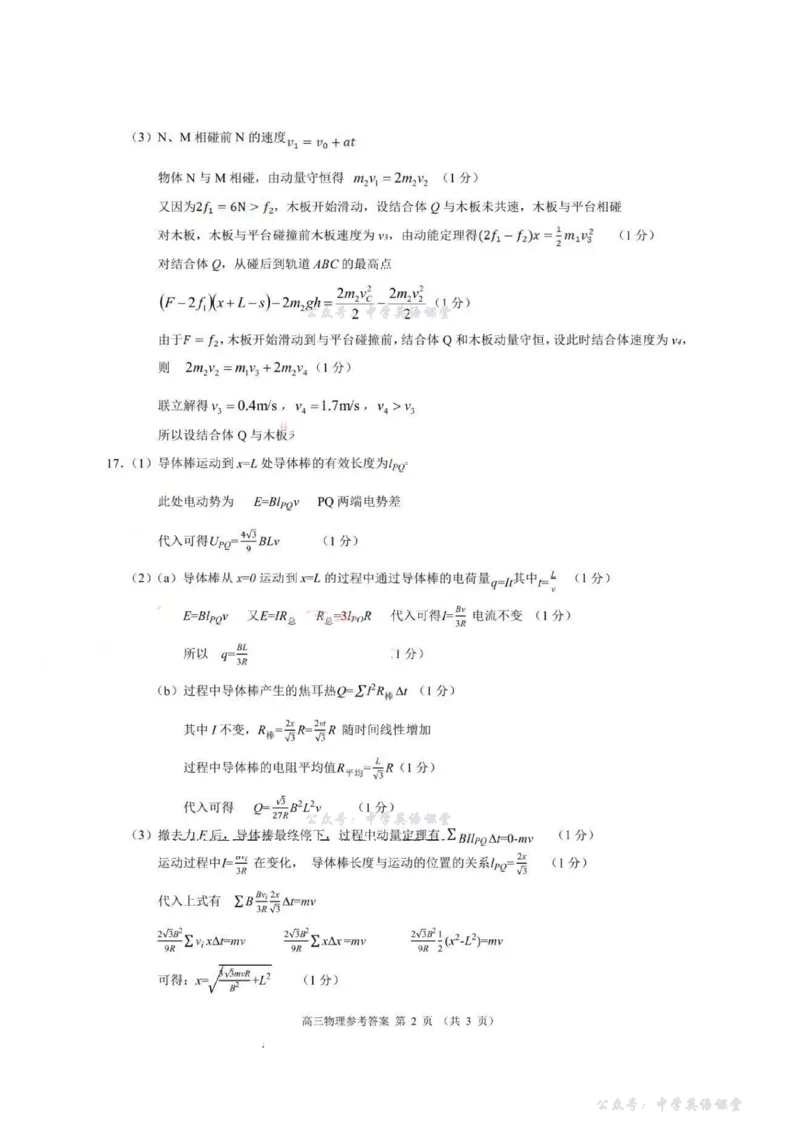 （3）N、M 相碰前 N 的速度v₁ = v₀ + at
物体 N 与 M 相碰，由动量守恒得 m₂v₁ = 2m₂v₂ （1 分）
又因为2f₁ = 6N > f₂，木板开始滑动，设结合体 Q 与木板未共速，木板与平台相碰
对木板，木板与平台碰撞前木板速度为 v₃，由动能定理得(2f₁ − f₂)x = ½ m₁v₃² （1 分）
对结合体 Q，从碰后到轨道 ABC 的最高点
(F − 2f₁)(x + L − s) − 2m₂gh = 2m₂v_C²/2 − 2m₂v₂²/2 （1 分）
公众号：中学英语课堂
由于F = f₂，木板开始滑动到与平台碰撞前，结合体 Q 和木板动量守恒，设此时结合体速度为 v₄，
则 2m₂v₂ = m₁v₃ + 2m₂v₄（1 分）
联立解得v₃ = 0.4m/s，v₄ = 1.7m/s，v₄ > v₃
所以设结合体 Q 与木板
17.（1）导体棒运动到 x=L 处导体棒的有效长度为l_PQ=
此处电动势为 E=Bl_PQ v PQ 两端电势差
代入可得U_PQ= 4√3/9 BLv （1 分）
（2）（a）导体棒从 x=0 运动到 x=L 的过程中通过导体棒的电荷量q=It其中t= L/v （1 分）
E=Bl_PQ v 又E=IR总 R总=3l_PQ R 代入可得I= Bv/3R 电流不变 （1 分）
所以 q= BL/3R 1 分）
（b）过程中导体棒产生的焦耳热Q=∑I²R棒 Δt （1 分）
其中 I 不变，R棒= 2x/√3 R= 2vt/√3 R 随时间线性增加
过程中导体棒的电阻平均值R平均= L/√3 R（1 分）
代入可得 Q= √3/27R B²L²v （1 分）
公众号：中学英语课堂
（3）撤去力 F 后，导体棒最终停下，过程中动量定理有 ∑ BIl_PQ Δt=0-mv （1 分）
运动过程中I= Bvᵢ/3R 在变化， 导体棒长度与运动的位置的关系l_PQ= 2x/√3 （1 分）
代入上式有 ∑B Bvᵢ/3R 2x/√3 Δt=mv
2√3B²/9R ∑vᵢxΔt=mv 2√3B²/9R ∑xΔx=mv 2√3B²/9R 1/2 (x²-L²)=mv
可得：x=√(3√3mvR/B² +L²) （1 分）
高三物理参考答案 第 2 页 （共 3 页）
公众号：中学英语课堂